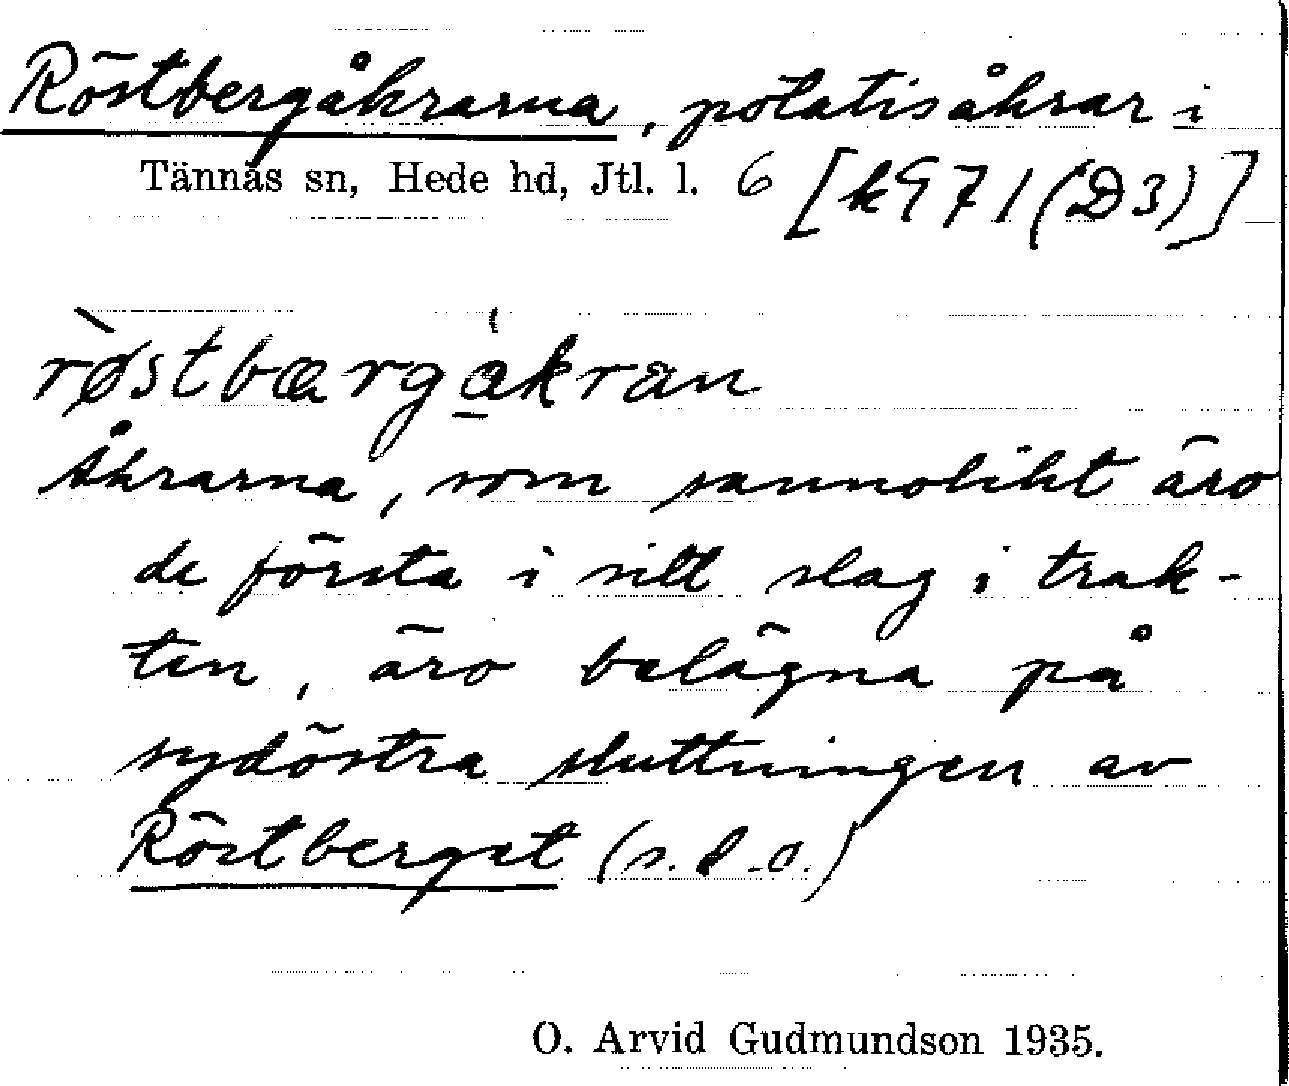 Röstbergåkrarna, potatisåkrar i
Tännäs sn, Hede hd, Jtl. l. 6 [k971(D3)]
rø̀stbærgǻ̱kran
Åkrarna, som sannolikt äro
de första i sitt slag i trak-
ten, äro belägna på
sydöstra sluttningen av
Röstberget (s.d.o.)
O. Arvid Gudmundson 1935.